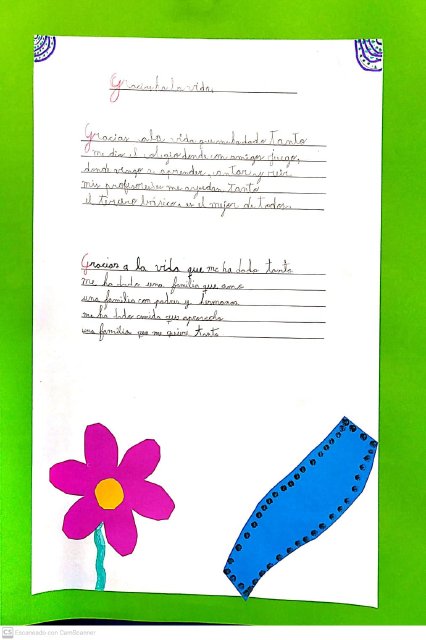 Gracias ha la vida
Gracias ala vida que me ha dado Tanto
me dio el colegio donde con amigos juego,
donde vengo a aprender, cantar y reir.
mis profesores me ayudan tanto
el tercero básico es el mejor de todos.
Gracias a la vida que me ha dado tanto
me ha dado una familia que amo
una familia con padres y hermanos
me ha dado comida que
una familia que me quiere tanto
CS Escaneado con CamScanner